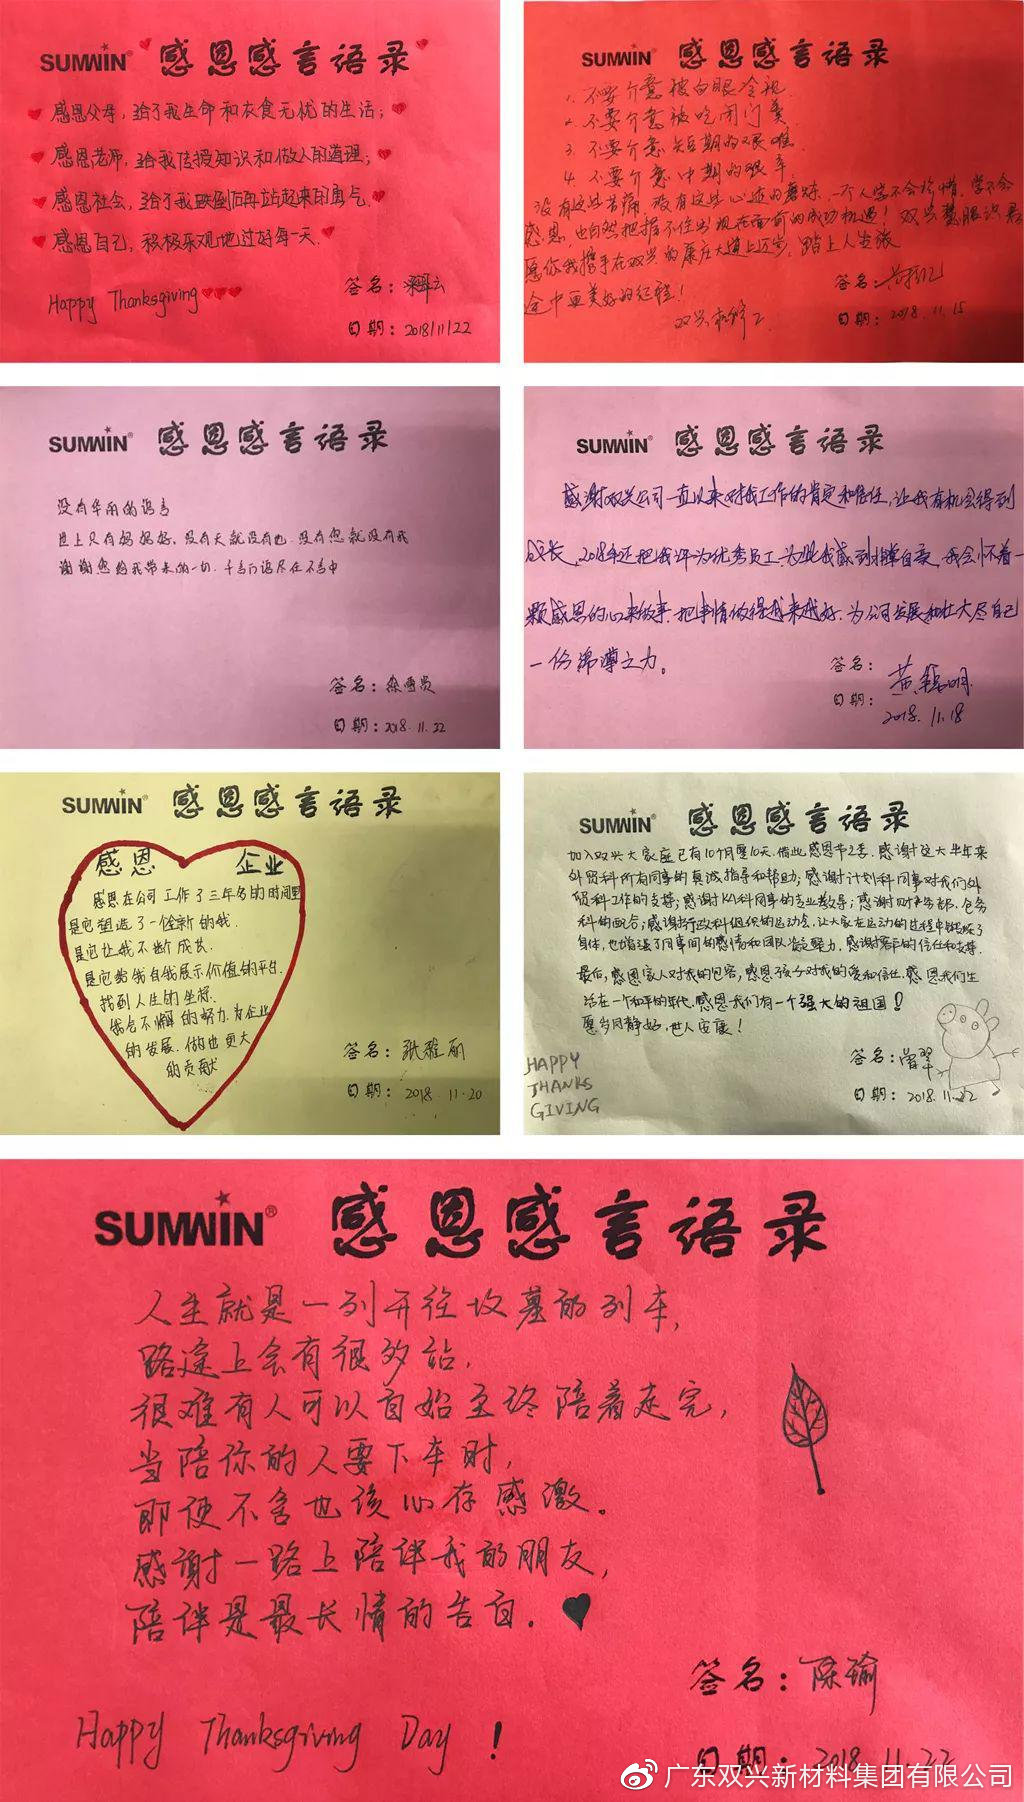 SUMWIN® 感恩感言语录
感恩父母,给了我生命和衣食无忧的生活;
感恩老师,给我传授知识和做人的道理;
感恩社会,给了我跌倒后再站起来的勇气.
感恩自己,积极乐观地过好每一天.
Happy Thanksgiving
签名:
日期:2018/11/22
SUMWIN® 感恩感言语录
1. 不要介意被白眼冷视
2. 不要介意被吃闭门羹
3. 不要介意短期的艰难
4. 不要介意中期的艰辛
没有这些苦痛,没有这些心迹的磨炼,一个人学不会珍惜,学不会
感恩,也自然把握不住出现在面前的成功机遇!双兴
愿你我携手在双兴的康庄大道上迈步,踏上人生旅
途中更美好的征程!
双兴
签名:
日期:2018.11.15
SUMWIN® 感恩感言语录
没有华丽的语言
世上只有妈妈好,没有天就没有地.没有您就没有我
谢谢您给我带来的一切.千言万语尽在不言中
签名:
日期:2018.11.22
SUMWIN® 感恩感言语录
感谢双兴公司一直以来对我工作的肯定和信任,让我有机会得到
成长,2018年还把我评为优秀员工.为此我感到 自豪,我会怀着一
颗感恩的心来做事.把事情做得越来越好.为公司发展和壮大尽自己
一份绵薄之力。
签名:黄 明
日期:2018.11.18
SUMWIN® 感恩感言语录
感恩 企业
感恩在公司工作了三年多的时间里
是它塑造了一个全新的我.
是它让我不断成长.
是它给我自我展示价值的平台.
找到人生的坐标.
我会不懈的努力.为企业
的发展.做出更大
的贡献
签名:张雅丽
日期:2018.11.20
SUMWIN® 感恩感言语录
加入双兴大家庭已有10个月零10天.借此感恩节之季.感谢这大半年来
外贸科所有同事的真诚指导和帮助;感谢计划科同事对我们外
贸科工作的支持;感谢 科同事的专业教导;感谢财务部、
科的配合;感谢行政科组织的运动会.让大家在运动的过程中锻炼了
身体,也增进了同事间的感情和团队凝聚力.感谢 的信任和支持.
最后,感恩家人对我的包容,感恩孩子对我的爱和信任.感恩我们生
活在一个和平的年代.感恩我们有一个强大的祖国!
愿岁月静好,世人安康!
HAPPY
THANKS
GIVING
签名:曾翠
日期:2018.11.22
SUMWIN® 感恩感言语录
人生就是一列开往坟墓的列车,
路途上会有很多站,
很难有人可以自始至终陪着走完,
当陪你的人要下车时,
即使不舍也该心存感激。
感谢一路上陪伴我的朋友,
陪伴是最长情的告白.
签名:陈瑜
Happy Thanksgiving Day !
日期:2018.11.22
广东双兴新材料集团有限公司